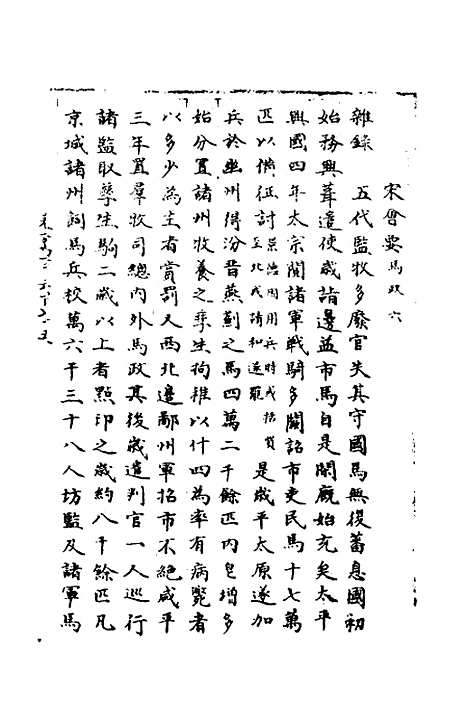 宋會要馬政六
雜錄　五代監牧多廢官失其守國馬無復蓄息國初
始務興葺遣使歲詣邊益市馬自是閑廐始充矣太平
興國四年太宗閱諸軍戰騎多闕詔市吏民馬十七萬
匹以備征討景德因用兵時或括買至北戎請和遂罷是歲平太原遂加
兵於幽州得汾晉燕薊之馬四萬二千餘匹內皂增多
始分置諸州牧養之孳生拘稚以什四為率有病斃者
以多少為主者賞罰又西北邊鄙州軍招市不絕咸平
三年置羣牧司總內外馬政其後歲遣判官一人巡行
諸監取孳生駒二歲以上者點印之歲約八千餘匹凡
京城諸州飼馬兵校萬六千三十八人坊監及諸軍馬